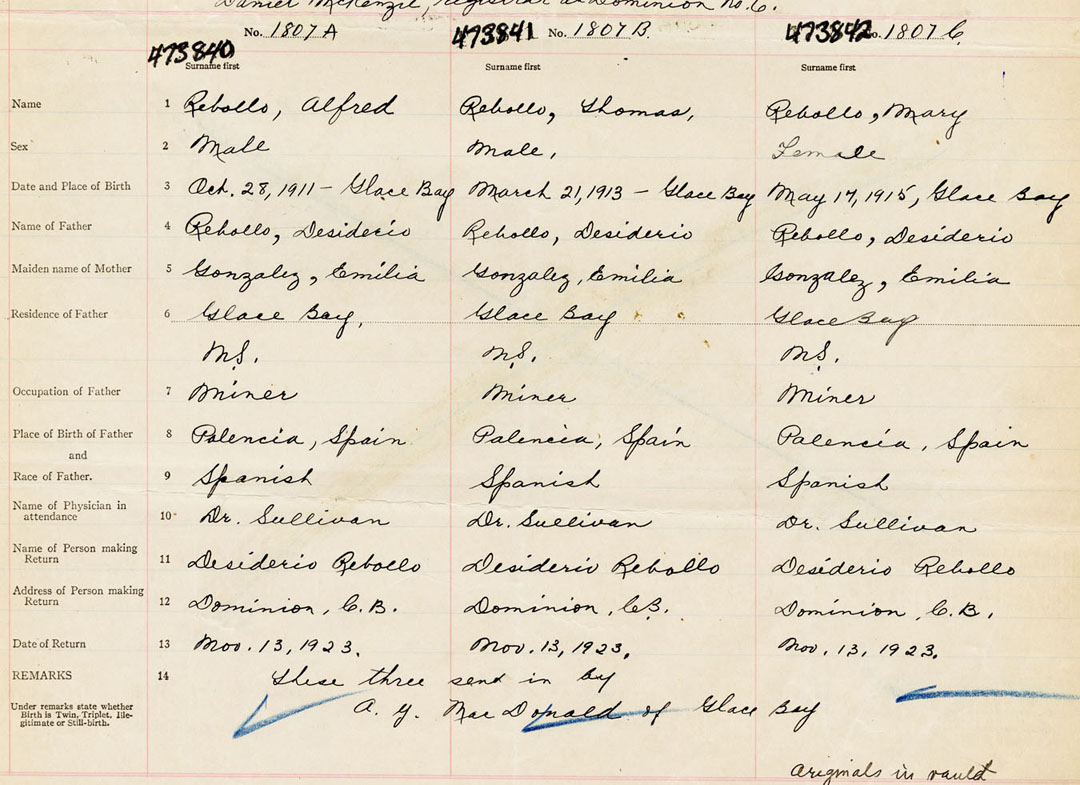 Daniel McKenzie, registrar at Dominion No. 6.
No. 1807 A 473841 No. 1807 B. 473842 No. 1807 C.
473840
Surname first Surname first Surname first
Name 1 Rebollo, Alfred Rebollo, Thomas, Rebollo, Mary
Sex 2 Male Male, Female
Date and Place of Birth 3 Oct. 28, 1911 - Glace Bay March 21, 1913 - Glace Bay May 17, 1915, Glace Bay
Name of Father 4 Rebollo, Desiderio Rebollo, Desiderio Rebollo, Desiderio
Maiden name of Mother 5 Gonzalez, Emilia Gonzalez, Emilia Gonzalez, Emilia
Residence of Father 6 Glace Bay, Glace Bay Glace Bay
N.S. N.S. N.S.
Occupation of Father 7 Miner Miner Miner
Place of Birth of Father 8 Palencia, Spain Palencia, Spain Palencia, Spain
and
Race of Father. 9 Spanish Spanish Spanish
Name of Physician in
attendance 10 Dr. Sullivan Dr. Sullivan Dr. Sullivan
Name of Person making
Return 11 Desiderio Rebollo Desiderio Rebollo Desiderio Rebollo
Address of Person making
Return 12 Dominion, C.B. Dominion, C.B. Dominion, C.B.
Date of Return 13 Nov. 13, 1923. Nov. 13, 1923. Nov. 13, 1923.
REMARKS 14 These three send in by
Under remarks state whether
Birth is Twin, Triplet, Ille-
gitimate or Still-birth.
A. Y. MacDonald of Glace Bay
Originals in vault